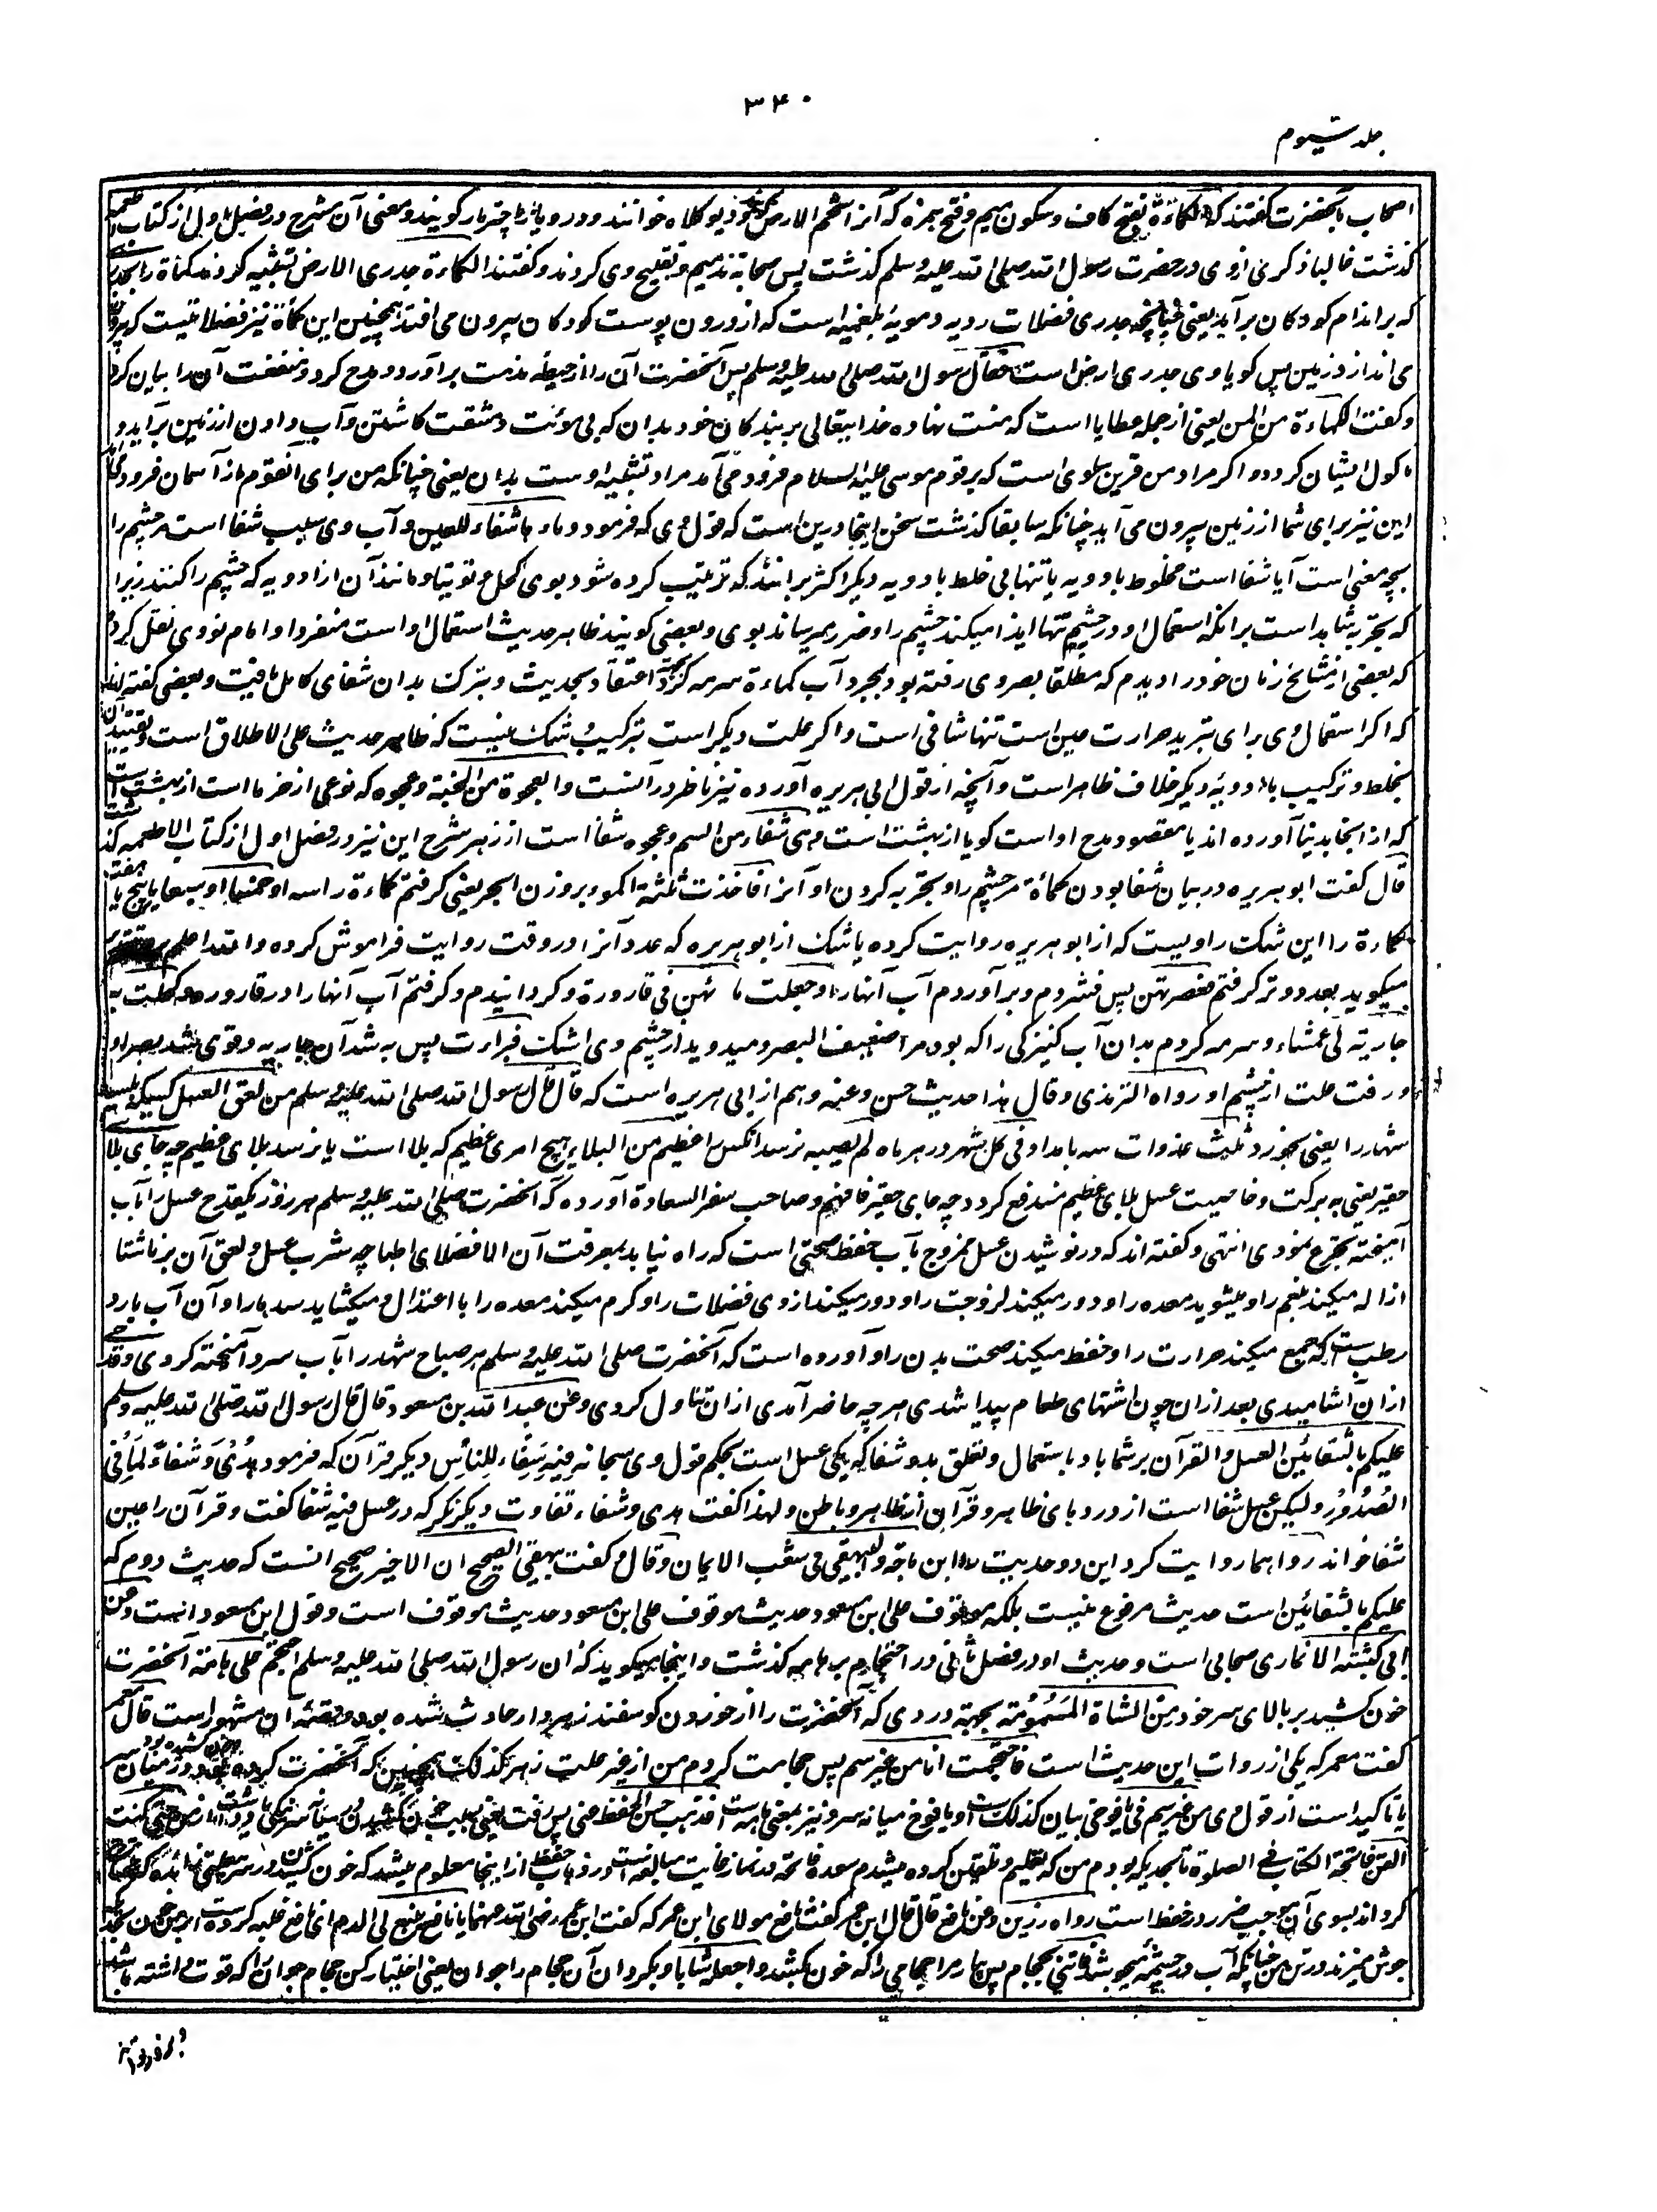 ۳۴۰
جلد سیوم
اصحاب بآنحضرت گفتند که الکماءة بفتح کاف و سکون میم و فتح همزه که آنرا شحم الارض و دیو کلاه خوانند و در و یا چتر مار گویند و معنی آن مشرح در فصل اول از کتاب اطعمه
گذشت غالبا ذکری از وی در حضرت رسول الله صلی الله علیه وسلم گذشت پس صحابه تذمیم و تقبیح وی کردند و گفتند الکماءة جدری الارض تشبیه کردند کمأة را بجدری
که بر اندام کودکان برآید یعنی چنانچه جدری فضلات ردیه دمویه بلغمیه است که از درون پوست کودکان بیرون می افتد همچنین این کمأة نیز فضلاتیست که بیرون
می اندازد زمین پس گویا وی جدری ارض است فقال رسول الله صلی الله علیه وسلم پس آنحضرت آن را از حیطه مذمت برآورد و مدح کرد و منفعت آن را بیان کرد
و گفت الکماءة من المن یعنی از جمله عطایا است که منت نهاده خدایتعالی بر بندگان خود بدان که بی موئنت و مشقت کاشتن و آب دادن از زمین برآید و
ماکول ایشان گردد و اگر مراد من قرین سلوی است که بر قوم موسی علیه السلام فرود می آمد مراد تشبیه اوست بدان یعنی چنانکه من برای آنقوم از آسمان فرود
این نیز برای شما از زمین بیرون می آید چنانکه سابقا گذشت سخن اینجا درین است که قول وی که فرمود و ماءها شفاء للعین و آب وی سبب شفا است مر چشم را
بچه معنی است آیا شفا است مخلوط بادویه یا تنها بی خلط بادویه دیگر اکثر برانند که ترتیب کرده شود بوی کحل و توتیا و مانند آن از ادویه که چشم را کنند زیرا
که تجربه شاهد است برانکه استعمال او در چشم تنها ایذا میکند چشم را و ضرر میرساند بوی و بعضی گویند ظاهر حدیث استعمال او است منفردا و امام نووی نقل کرده
که بعضی از مشایخ زمان خود را دیدم که مطلقا بصر وی رفته بود بمجرد آب کماءة سرمه کرد اعتقاد بحدیث و تبرک بدان شفای کامل یافت و بعضی گفته اند
که اگر استعمال وی برای تبرید حرارت عین است تنها شافی است و اگر علت دیگر است بترکیب و شک نیست که ظاهر حدیث علی الاطلاق است و تقیید آن
بخلط و ترکیب با ادویه دیگر خلاف ظاهر است و آنچه از قول ابی هریره آورده نیز ناظر در آنست والعجوة من الجنة و عجوه که نوعی از خرما است از بهشت است
که از انجا بدنیا آورده اند یا مقصود مدح او است گویا از بهشت است وهی شفاء من السم و عجوه شفا است از زهر شرح این نیز در فصل اول از کتاب الاطعمه گذشت
قال گفت ابو هریره در بیان شفا بودن کمأة مر چشم را و تجربه کردن او آنرا فاخذت ثلثة اکمؤ بروزن ابحر یعنی گرفتم کماءة را سه او خمسا او سبعا یا پنج یا هفت
کماءة را این شک راویست که از ابو هریره روایت کرده یا شک از ابو هریره که عدد آنرا در وقت روایت فراموش کرده والله اعلم
میگوید بعدد وتر گرفتم فعصرتهن پس فشردم و برآوردم آب آنها را وجعلت ماءهن فی قارورة و گردانیدم و گرفتم آب آنها را در قاروره وکحلت به
جاریة لی عمشاء و سرمه کردم بدان آب کنیزکی را که بود مرا ضعیف البصر و میدوید از چشم وی اشک فبرأت پس به شد آن جاریه و قوی شد بصر او
و رفت علت از چشم او رواه الترمذی وقال هذا حدیث حسن وعنه و هم از ابی هریره است که قال قال رسول الله صلی الله علیه وسلم من لعق العسل کسیکه بلیسد
شهد را یعنی بخورد ثلث غدوات سه بامداد فی کل شهر در هر ماه لم یصبه نرسد آنکس را عظیم من البلاء هیچ امری عظیم که بلا است یا نرسد بلای عظیم چه جای بلا
حقیر یعنی به برکت و خاصیت عسل بلای عظیم مندفع گردد چه جای حقیر فافهم و صاحب سفر السعادة آورده که آنحضرت صلی الله علیه وسلم هر روز یکقدح عسل را بآب
آمیخته تجرع نمودی انتهی و گفته اند که در نوشیدن عسل ممزوج بآب حفظ صحتی است که راه نیابد بمعرفت آن الا فضلای اطبا چه شرب عسل و لعق آن بر ناشتا
ازاله میکند بلغم را و میشوید معده را و دور میکند لزوجت را و دور میکند از وی فضلات را و گرم میکند معده را باعتدال و میکشاید سدها را و آن آب بارد
رطب است که جمع میکند حرارت را و حفظ میکند صحت بدن را و آورده است که آنحضرت صلی الله علیه وسلم هر صباح شهد را بآب سرد آمیخته کردی و قدحی
ازان آشامیدی بعد ازان چون اشتهای طعام پیدا شدی هر چه حاضر آمدی ازان تناول کردی وعن عبدالله بن مسعود قال قال رسول الله صلی الله علیه وسلم
علیکم بالشفائین العسل والقرآن بر شما باد باستعمال و تعلق بدو شفا که یکی عسل است بحکم قول وی سبحانه فیه شفاء للناس دیگر قرآن که فرمود هدی وشفاء لما فی
الصدور ولیکن عسل شفا است از دردهای ظاهر و قرآن از ظاهر و باطن و لهذا گفت هدی و شفاء تفاوت دیگر نگر که در عسل فیه شفا گفت و قرآن را عین
شفا خواند رواهما روایت کرد این دو حدیث را ابن ماجة والبیهقی فی شعب الایمان وقال و گفت بیهقی الصحیح ان الاخیر صحیح آنست که حدیث دوم که
علیکم بالشفائین است حدیث مرفوع نیست بلکه موقوف علی ابن مسعود حدیث موقوف است و قول ابن مسعود است وعن
ابی کبشة الانماری صحابی است و حدیث او در فصل ثانی در احتجام بر هامه گذشت و اینجا میگوید که ان رسول الله صلی الله علیه وسلم احتجم علی هامته آنحضرت
خون کشید بر بالای سر خود من الشاة المسمومة بجهة دردی که آنحضرت را از خوردن گوسفند زهردار حادث شده بود و قصه آن مشهور است قال معمر
گفت معمر که یکی از روات این حدیث است فاحتجمت انا من غیر سم پس حجامت کردم من از غیر علت زهر کذلک همچنین که آنحضرت کرده
یا تاکید است از قول وی من غیر سم فی یافوخی بیان کذلک است و یافوخ میانه سر و نیز بمعنی هامه است فذهب حسن الحفظ عنی پس رفت یعنی بسبب خون کشیدن
القن فاتحة الکتاب فی الصلوة تا بحدیکه بودم من که تعلیم و تلقین کرده میشدم سوره فاتحه در نماز غایت مبالغه است در ذهاب حفظ از اینجا معلوم میشود که خون کشیدن
گرداند بسوی آن موجب ضرر در حفظ است رواه رزین وعن نافع قال قال ابن عمر گفت نافع مولای ابن عمر که گفت ابن عمر رضی الله عنهما یا نافع ینبع لی الدم ای نافع غلبه کرده است
جوش میزند در تن من چنانکه آب در چشمه میجوشد فاتنی بحجام پس بیار مرا حجامی را که خون بکشد واجعله شابا و بگردان آن حجام را جوان یعنی اختیار کن حجام جوان را که قوت داشته باشد